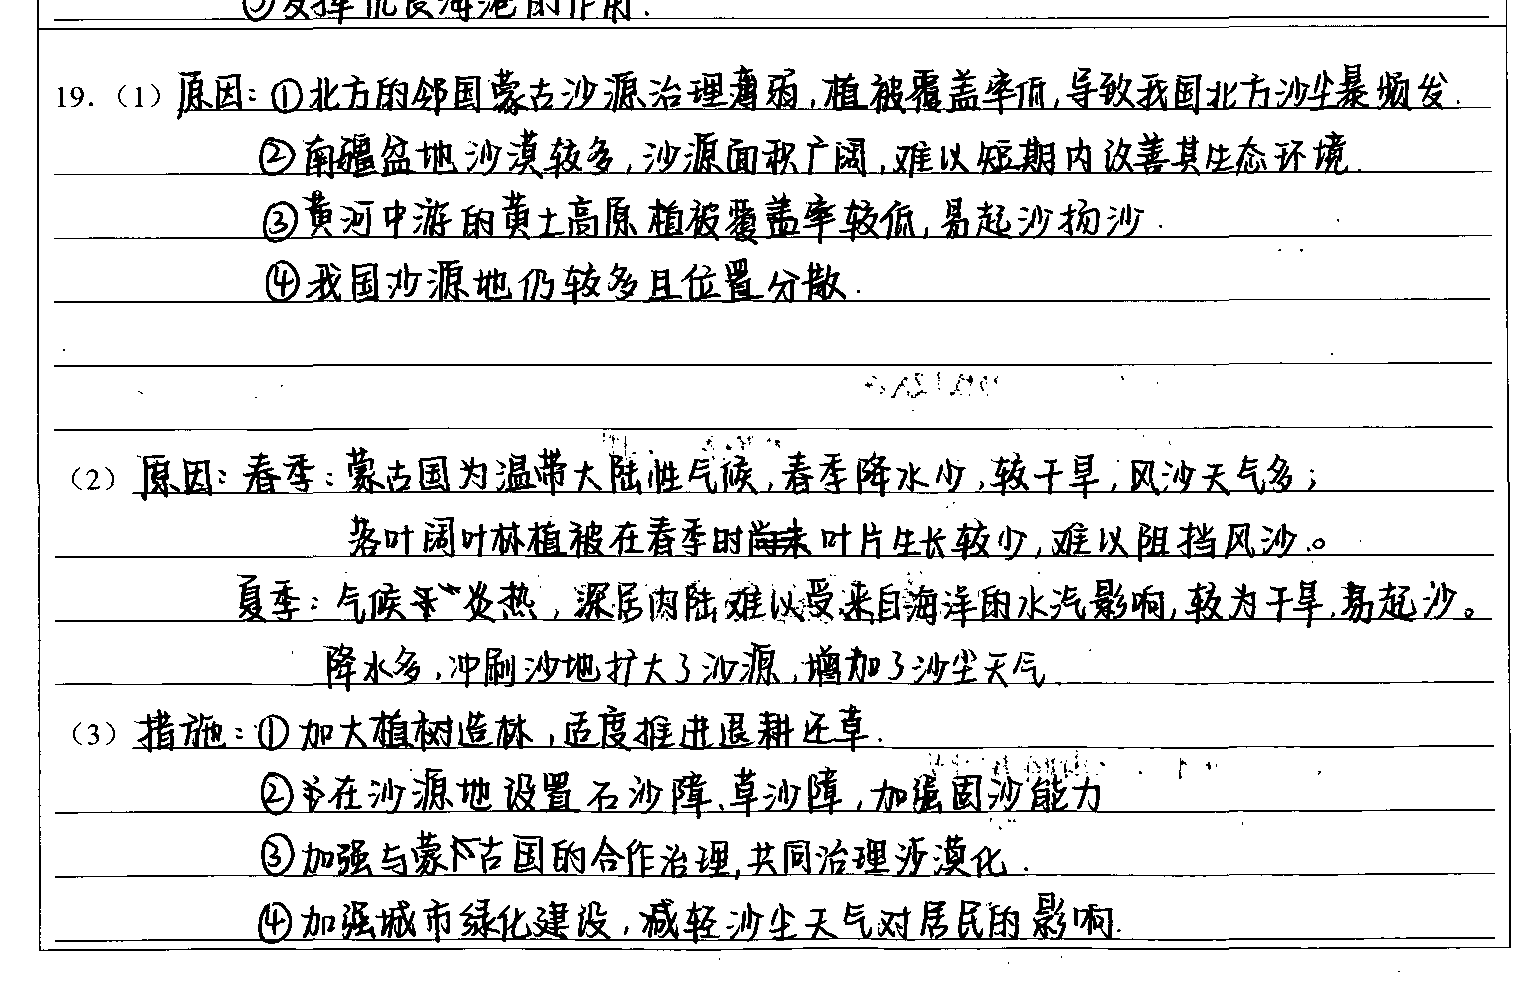 ③发挥优良海港的作用.
19.（1）原因：①北方的邻国蒙古沙源治理薄弱,植被覆盖率低,导致我国北方沙尘暴频发.
②南疆盆地沙漠较多,沙源面积广阔,难以短期内改善其生态环境.
③黄河中游的黄土高原植被覆盖率较低,易起沙扬沙.
④我国沙源地仍较多且位置分散.
（2）原因：春季：蒙古国为温带大陆性气候,春季降水少,较干旱,风沙天气多；
落叶阔叶林植被在春季时叶片生长较少,难以阻挡风沙。
夏季：气候炎热,深居内陆难以受来自海洋的水汽影响,较为干旱,易起沙。
降水多,冲刷沙地扩大了沙源,增加了沙尘天气.
（3）措施：①加大植树造林,适度推进退耕还草.
②在沙源地设置石沙障、草沙障,加强固沙能力
③加强与蒙古国的合作治理,共同治理沙漠化.
④加强城市绿化建设,减轻沙尘天气对居民的影响.